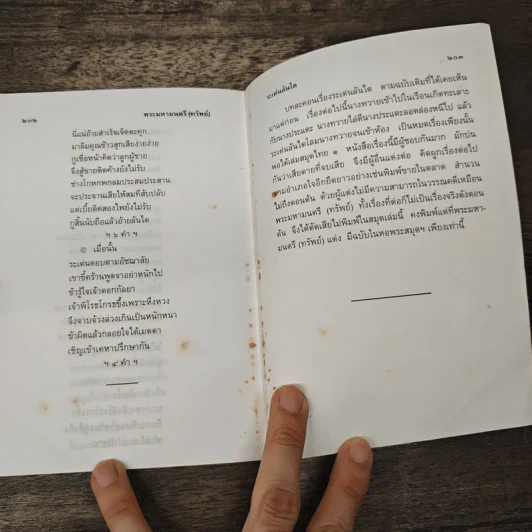 ๒๐๒
พระมหามนตรี (ทรัพย์)
นี่แน่อ้ายสำเร็จเจ็ดตะคุก
มาลืมคุณข้าวสุกเสียง่ายง่าย
กูเชื่อหน้าคิดว่าลูกผู้ชาย
จึงสู้ขายติดค้างยังไม่รับ
ช่างโกหกพกลมประสมประสาน
จะประจานเสียให้สมที่สับปลับ
แต่เบี้ยติดสองไพยังไม่รับ
กูสิ้นนับถือแล้วอ้ายลันได
ฯ ๖ คำ ฯ
๏ เมื่อนั้น
ระเด่นตอบตามอัชฌาสัย
เขาขี้คร้านพูดจาอย่าหนักไป
ข้ารู้ใจเจ้าดอกกัลยา
เจ้าพิโรธโกรธขึ้งเพราะหึงหวง
จึงจาบจ้วงล่วงเกินเป็นหนักหนา
ข้าผิดแล้วกลอยใจได้เมตตา
เชิญเข้าเคหาปรึกษากัน
ฯ ๔ คำ ฯ
ระเด่นลันได
๒๐๓
บทละคอนเรื่องระเด่นลันได ตามฉบับเดิมที่ได้เคยเห็น
มาแต่ก่อน เรื่องต่อไปนี้นางทวายเข้าไปในเรือนเกิดทะเลาะ
กับนางประแดะ นางทวายได้ตีนางประแดะลอดล่องหนีไป แล้ว
ระเด่นลันไดโลมนางทวายจนเข้าห้อง เป็นหมดเรื่องเพียงนั้น
พอได้เล่มสมุดไทย ๑ หนังสือเรื่องนี้มีผู้ชอบกันมาก มักบ่น
กันว่าเสียดายที่จบเสีย จึงมีผู้อื่นแต่งต่อ คิดผูกเรื่องต่อไป
ตามอำเภอใจอีกยืดยาวอย่างเช่นพิมพ์ขายในตลาด สำนวน
ไม่ถึงตอนต้น ด้วยผู้แต่งไม่มีความสามารถในวรรณคดีเหมือน
พระมหามนตรี (ทรัพย์) ทั้งเรื่องที่ต่อก็ไม่เป็นเรื่องจริงดังตอน
ต้น จึงได้ตัดเสียไม่พิมพ์ในสมุดเล่มนี้ คงพิมพ์แต่ที่พระมหา-
มนตรี (ทรัพย์) แต่ง มีฉบับในหอพระสมุดฯ เพียงเท่านี้